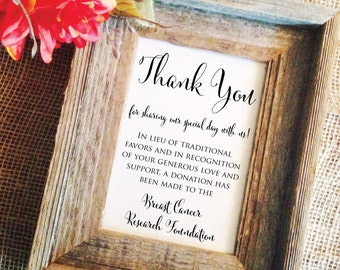 Thank You
for sharing our special day with us!
In lieu of traditional
favors and in recognition
of your generous love and
support, a donation has
been made to the
Breast Cancer
Research Foundation